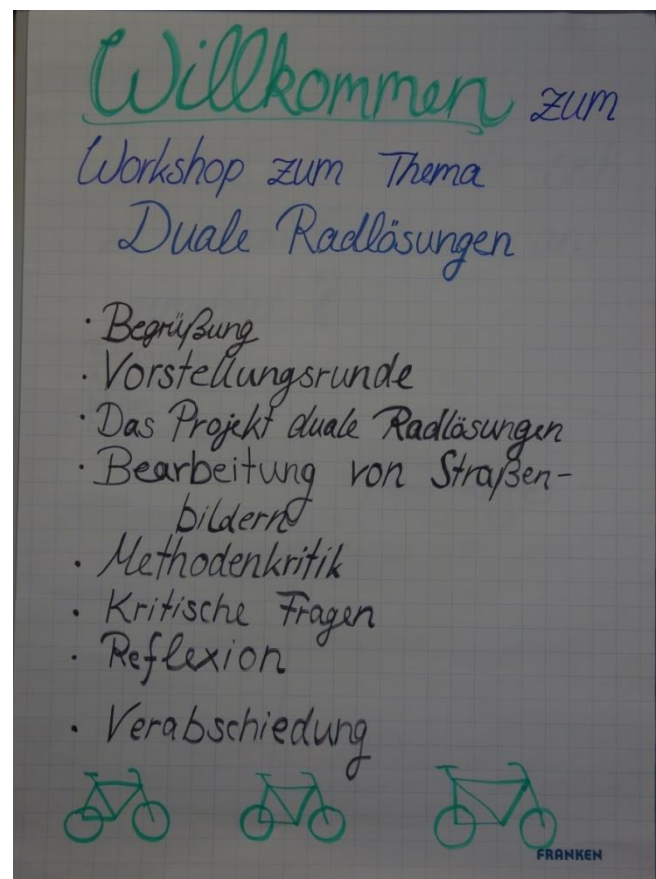 Willkommen zum
Workshop zum Thema
Duale Radlösungen
· Begrüßung
· Vorstellungsrunde
· Das Projekt duale Radlösungen
· Bearbeitung von Straßen-
bildern
· Methodenkritik
· Kritische Fragen
· Reflexion
· Verabschiedung
FRANKEN